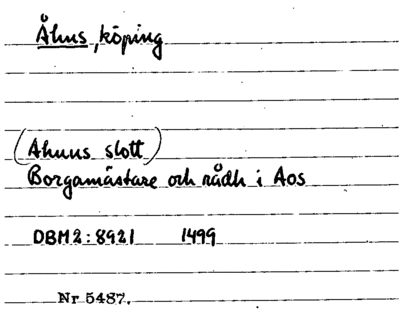 Åhus, köping
(Ahuus slott)
Borgamästare och rådh i Aos
DBM2:8921 1499
Nr 5487.